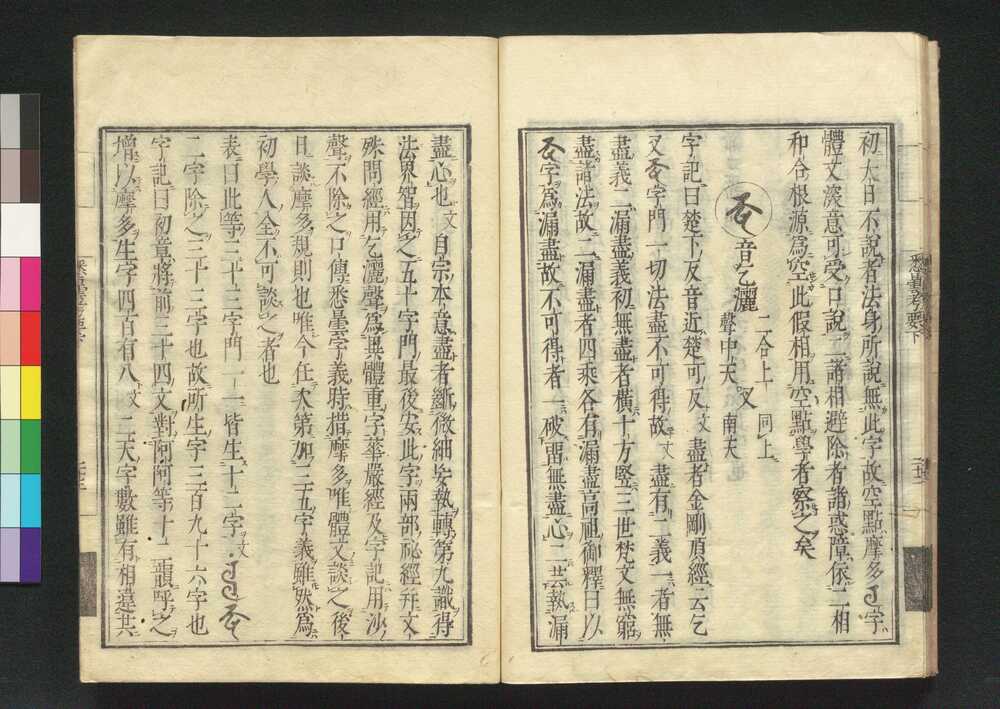 初大日不說者法身所說無此字故空點摩多字
體文深意可受口說二諍相避除者諸惑障依二相
和合根源爲空此假相用空點學者察之矣
音乞灑 二合上 聲中天 叉 同上 南天
字記曰楚下反音近楚可反文盡者金剛頂經云乞
叉字門一切法盡不可得故文盡有二義一者無
盡義二漏盡義初無盡者橫十方竪三世梵文無窮
盡諸法故二漏盡者四乘各有漏盡高祖御釋曰以
字爲漏盡故不可得者一破留無盡心二芸執漏
悉曇考要下
盡心也文自宗本意盡者斷微細妄執轉第九識得
法界智因之五十字門最後安此字兩部祕經并文
殊問經用乞灑聲爲異體重字華嚴經及字記用沙
聲不除之口傳悉曇字義時揩摩多唯體文談之後
且談摩多規則也唯今任次第加三五字義雖然爲
初學人全不可談之者也
表曰此等三十三字門一一皆生十二字文
二字除之三十三字也故所生字三百九十六字也
字記曰初章將前三十四文對阿阿等十二韻呼之
增以摩多生字四百有八文二天字數雖有相違共